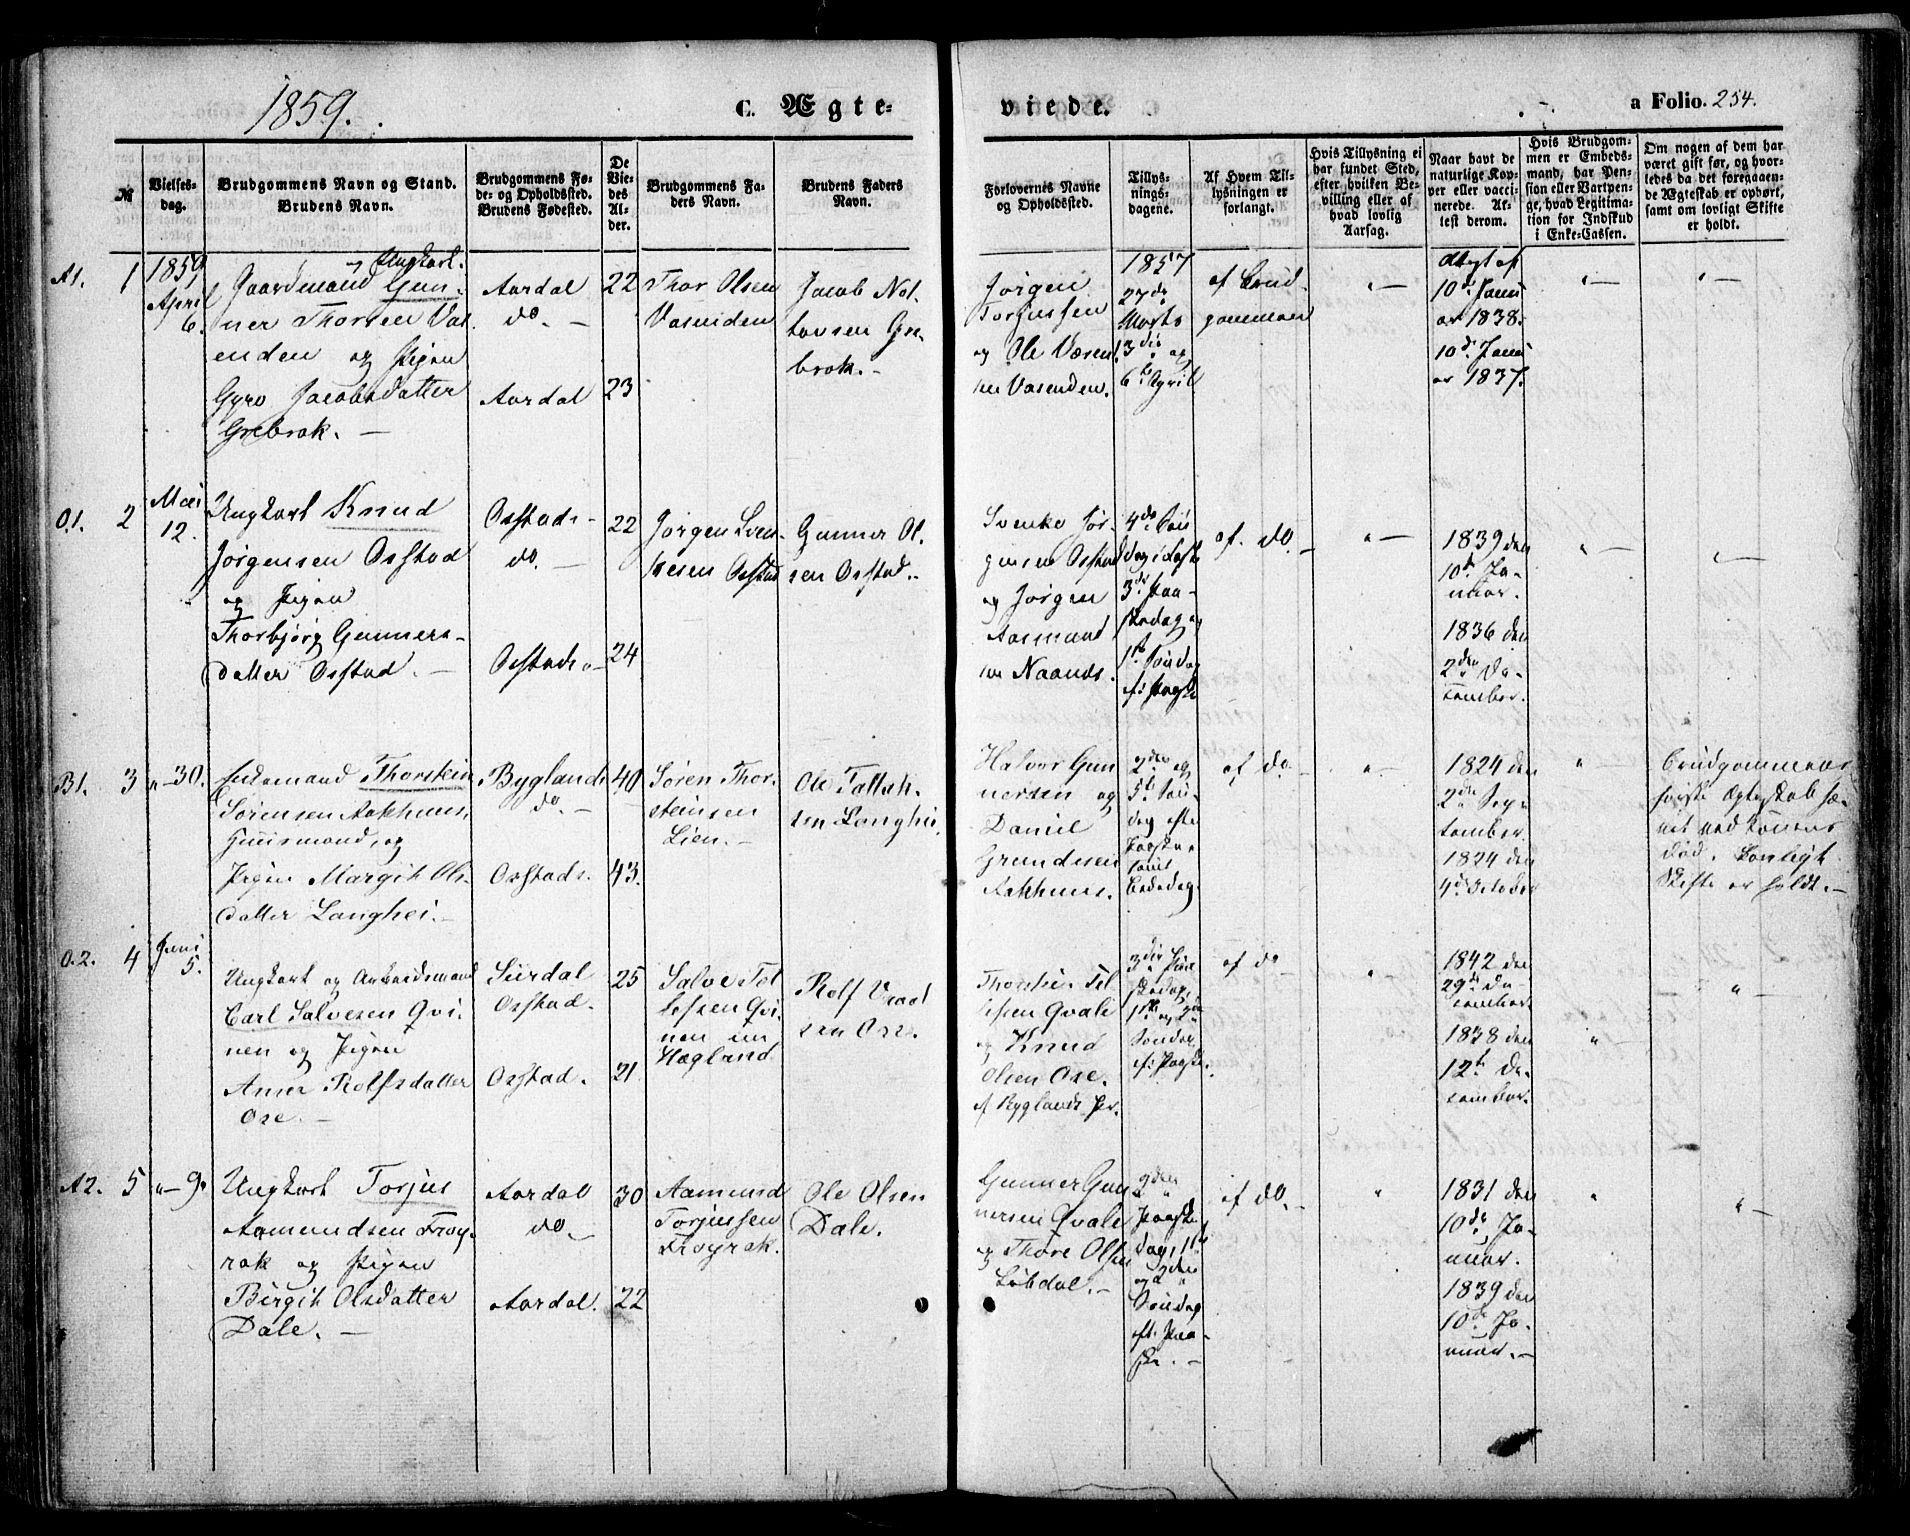 1859.
C. Ægte-
viede.
a Folio. 254.
№
Vielses-
dag.
Brudgommens Navn og Stand.
Brudens Navn.
Brudgommens Fø-
de- og Opholdssted.
Brudens Fødested.
De
Vie-
des
Al-
der.
Brudgommens Fa-
ders Navn.
Brudens Faders
Navn.
Forlovernes Navne
og Opholdssted.
Tillys-
nings-
dagene.
Af Hvem Til-
lysningen er
forlangt.
Hvis Tillysning ei
har fundet Sted,
efter hvilken Be-
villing eller af
hvad lovlig
Aarsag.
Naar havt de
naturlige Kop-
per eller vacci-
nerede. At-
test derom.
Hvis Brudgom-
men er Embeds-
mand, har Pen-
sion eller Vartpen-
ge, hvad Legitima-
tion for Indskud
i Enke-Cassen.
Om nogen af dem har
været gift før, og hvor-
ledes da det foregaaen-
de Ægteskab er ophørt,
samt om lovligt Skifte
er holdt.
A1.
1
1859
April
6.
Gaardmand og Ungkarl Gun-
ner Thorsen Vas-
enden og Pigen
Gyro Jacobsdatter
Grebrok. —
Aardal
do. —
Aardal
22
23
Thor Olsen
Vasenden
Jacob
Gre-
brok. —
Jörgen
Torjussen
og Ole
Vasenden.
1857
27de
Marts
3die og
6te April
af Brud-
gommen
" —
10de Janu
ar 1838.
10de Janu
ar 1837.
" —
" —
O.1.
2
Mai
12.
Ungkarl Knud
Jörgensen Osstad
og Pigen
Thorbjörg Gunners-
datter Osstad. —
Osstads —
do. —
Osstads. —
22
24
Jörgen Sven-
kesen Osstad
Gunner Ol-
sen Osstad. —
Svenke Jör-
gensen Osstad
og Jörgen
Aasmund
sen Naands.
4de Sön
dag i Faste
3die Paa-
skedag og
1ste Söndag
ef: Paaske
af do. —
" —
1839 den
10de Ja-
nuar.
1836 den
2den De-
cember.
" —
" —
B1.
3
" — 30.
Enkemand Thorstein
Sörensen Aakhuus,
Huusmand, og
Pigen Margit Ols-
datter Langhei. —
Byglands
do. —
Osstads.
40
43.
Sören Thor-
steinsen
Lien. —
Ole Tallak-
sen Langhei.
Halvor Gun
nersen og
Daniel
Grundsen
Aakhuus.
2den og
5te Sön-
dag efter
Paaske,
samt
Bededag
af do. —
" —
1824 den
2den Sep-
tember.
1824 den
4de October
"
Brudgommens
förste Ægteskab hæ-
vet ved Konens
Död. Lovligt
Skifte er holdt. —
O.2.
4
Juni
5.
Ungkarl og Arbeidsmand
Carl Salvesen Qvi-
nen og Pigen
Anne Rolfsdatter
Ose. —
Siirdal
Osstad.
Osstad.
25
21
Salve Tel
lefsen Qvi-
nen
Hægland
Rolf
sen Ose.
Tel
lefsen Qvale
og Knud
Olsen Ose.
af Byglands Pr.
3die
skedag,
1ste og 2den
Söndag
ef: Paaske.
af do —
"
1842 den
29de De
cember.
1838 den
12te De-
cember.
"
" —
A2.
5
" — 9.
Ungkarl Torjus
Aamundsen Fröy-
rak og Pigen
Birgit Olsdatter
Dale. —
Aardal
do —
Aardal.
30
22
Aamund
Torjussen
Fröyrak.
Ole Olsen
Dale.
Gunner Gun
nersen Qvale
og Thore Olsen
Löbdal. —
2den
Paaske
dag, 1ste
og 2den
Söndag
eft. Paa-
ske. —
af do. —
"
1831 den
10de Ja-
nuar.
1839 den
10de Ja-
nuar. —
"
" —